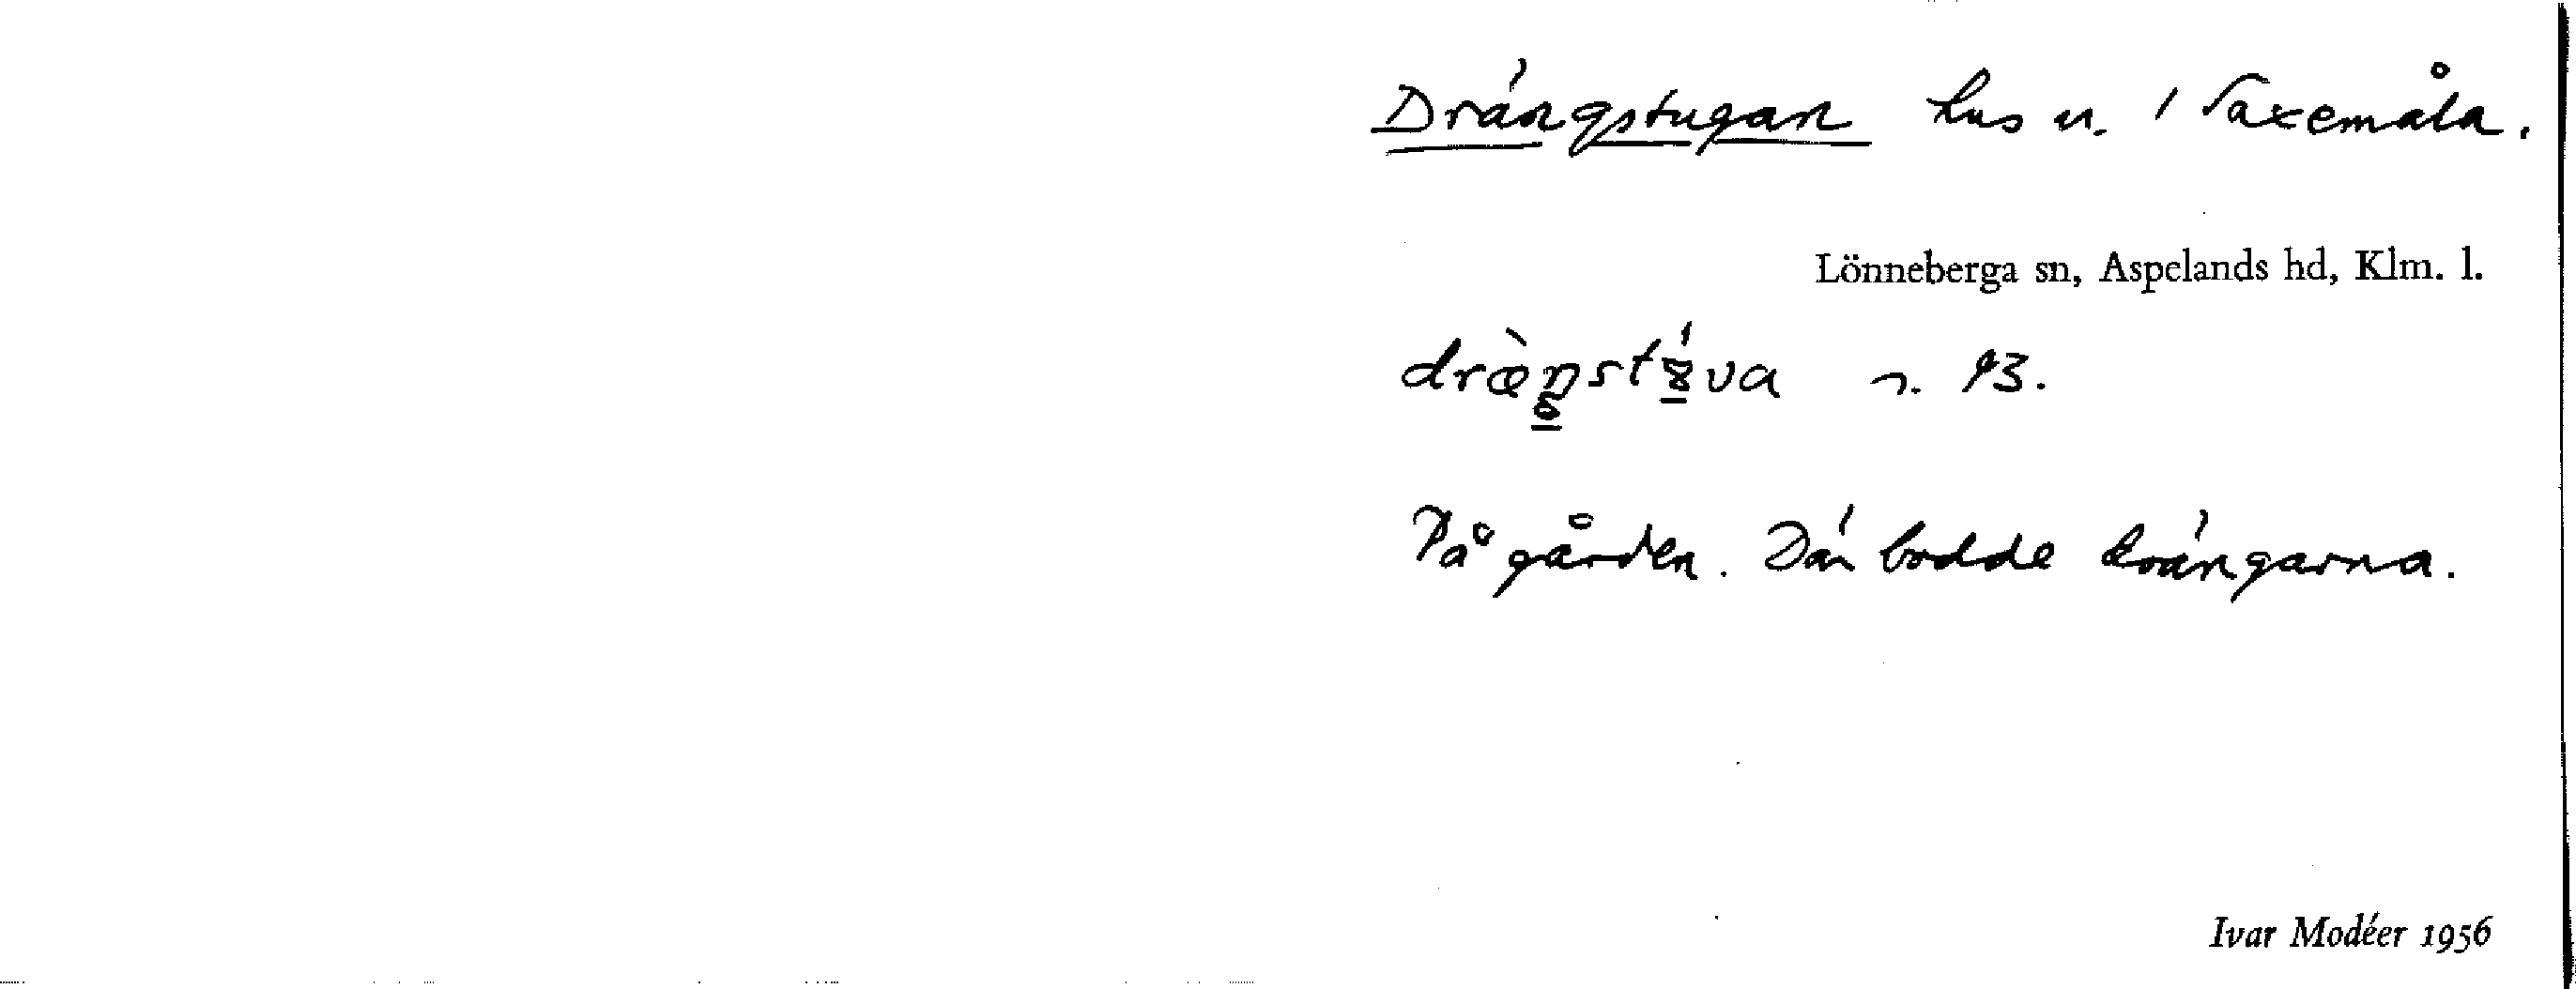 Drängstugan hus n. / Saxemåla.
Lönneberga sn, Aspelands hd, Klm. l.
n. 93.
På gården. Där bodde drängarna.
Ivar Modéer 1956